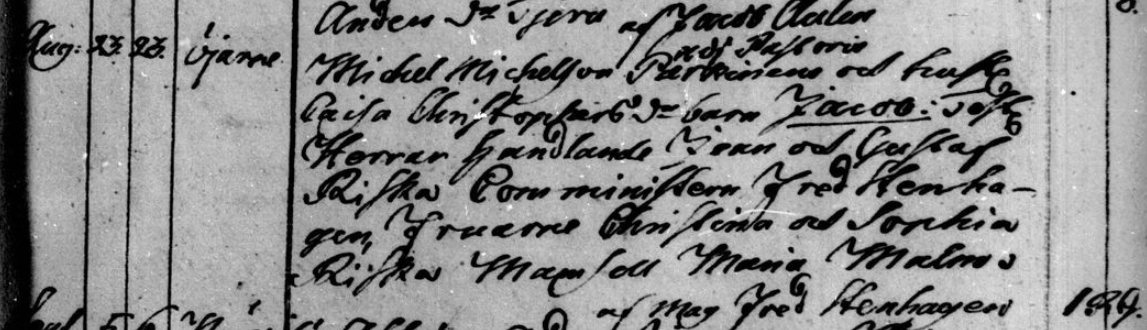 Anders Dr Björn af Jacob Aulin
Aug: 23. 23. Michel Michelson Parkinens och hust
adj Pastoris
Caisa Christophers Dr barn Jacob: Test
Herrar Handlande Ivan och Gustaf
Riska Comministern Fred Stenha-
gen, Fruarne Christina och Sophia
Riska Mamsell Maria Malm
af Mag Fred Stenhagen